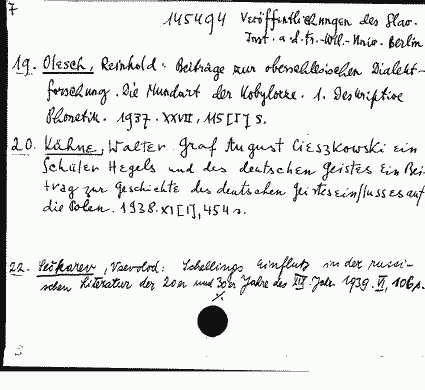 7
145494 Veröffentlichungen des Slav.
Inst. a. d. Fr.-Wilh.-Univ. Berlin
19. Olesch, Reinhold: Beiträge zur oberschlesischen Dialekt-
forschung. Die Mundart der Kobylorze. 1. Deskriptive
Phonetik. 1937. XXVII, 115 [I] S.
20. Kühne, Walter Graf August Cieszkowski ein
Schüler Hegels und des deutschen Geistes Ein Bei-
trag zur Geschichte des deutschen Geisteseinflusses auf
die Polen. 1938. XI [I], 454 s.
22. Sečkarev, Vsevolod: Schellings Einfluß in der russi-
schen Literatur der 20er und 30er Jahre des XIX. Jahr. 1939. VI, 106 s.